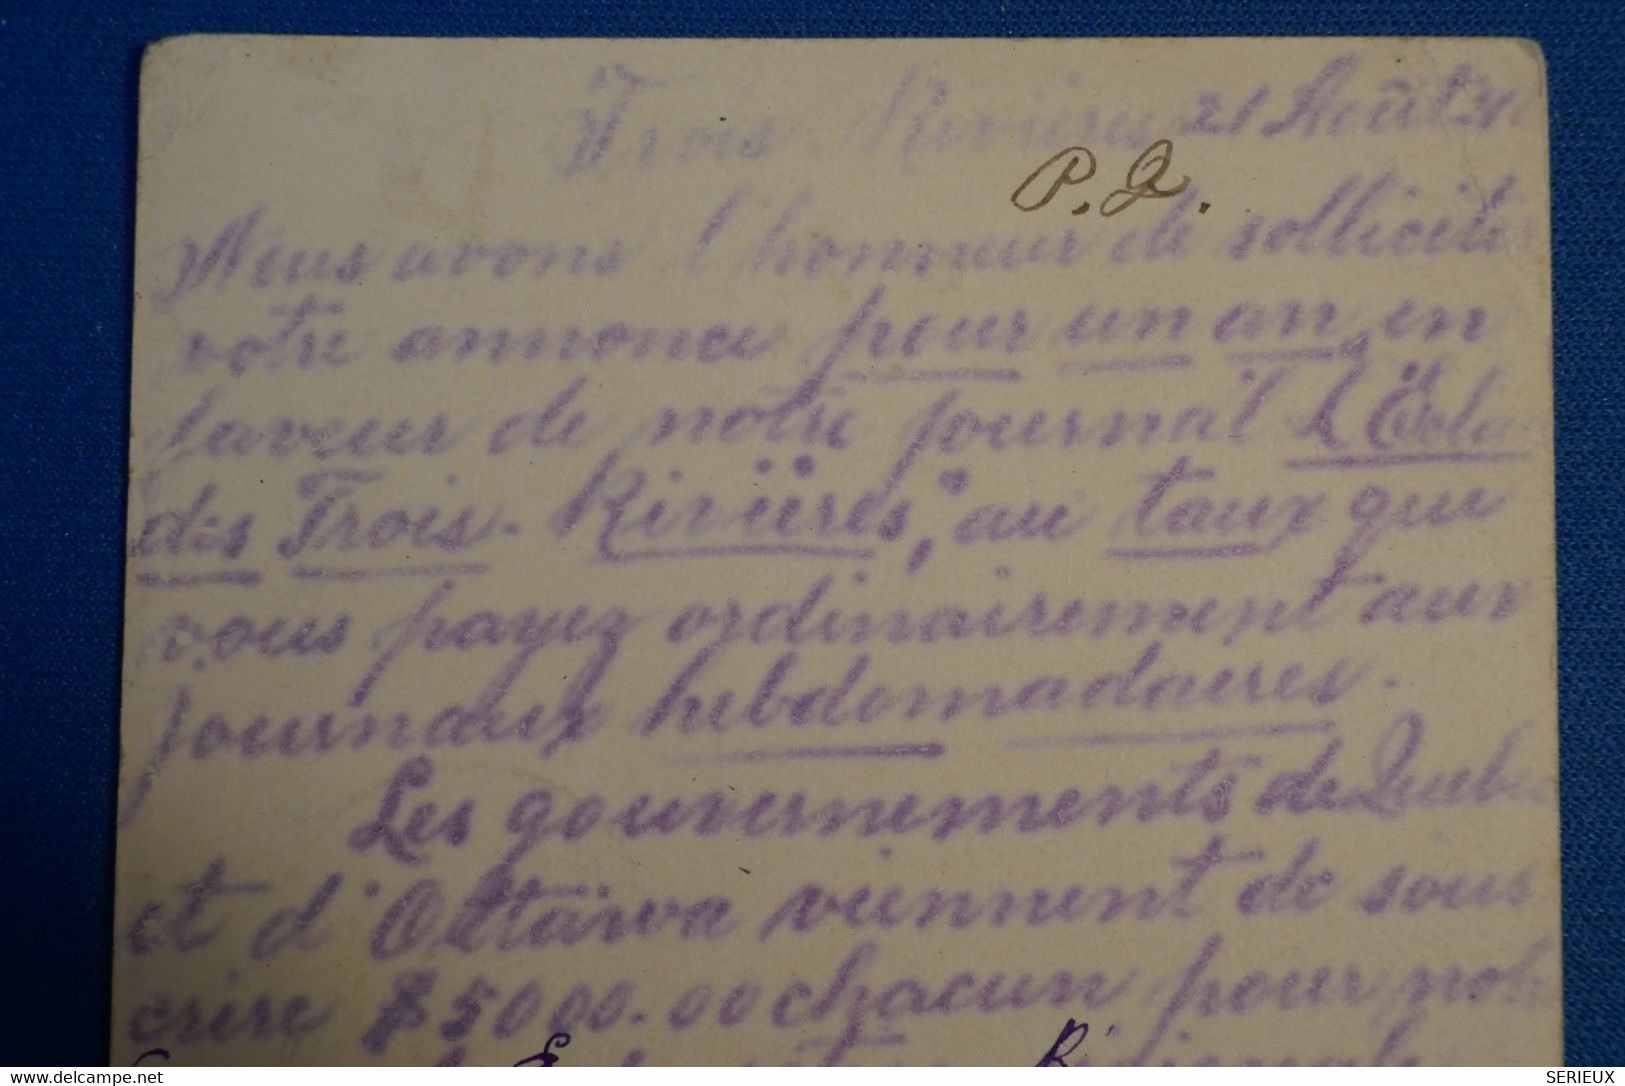 Trois-Rivières 21 Août
P.Q.
Nous avons l'honneur de solliciter
votre annonce pour un an, en
faveur de notre journal "L'Écla
des Trois-Rivières", au taux que
vous payez ordinairement aux
journaux hebdomadaires.
Les gouvernements de Québec
et d'Ottawa viennent de sous
crire $5000.00 chacun pour notre
SERIEUX